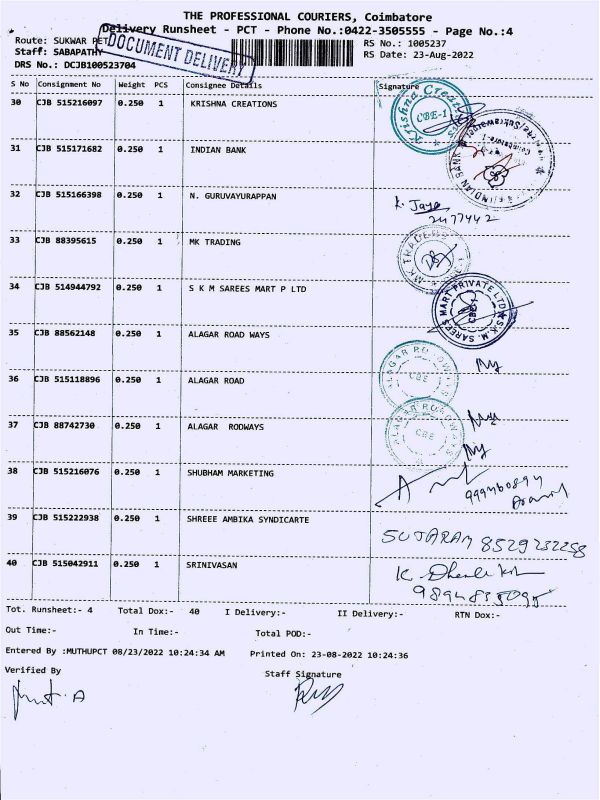 THE PROFESSIONAL COURIERS, Coimbatore
Delivery Runsheet - PCT - Phone No.:0422-3505555 - Page No.:4
Route: SUKWAR PET
DOCUMENT DELIVERY
RS No.: 1005237
Staff: SABAPATHY
RS Date: 23-Aug-2022
DRS No.: DCJB100523704
S No Consignment No Weight PCS Consignee Details Signature
30 CJB 515216097 0.250 1 KRISHNA CREATIONS
Krishna Creations
CBE-1
31 CJB 515171682 0.250 1 INDIAN BANK
INDIAN BANK
32 CJB 515166398 0.250 1 N. GURUVAYURAPPAN
K. Jaya
2477442
33 CJB 88395615 0.250 1 MK TRADING
MK TRADERS
34 CJB 514944792 0.250 1 S K M SAREES MART P LTD
S.K.M. SAREES MART PRIVATE LTD
35 CJB 88562148 0.250 1 ALAGAR ROAD WAYS
36 CJB 515118896 0.250 1 ALAGAR ROAD
ALAGAR ROADWAYS
CBE
37 CJB 88742730 0.250 1 ALAGAR RODWAYS
ALAGAR ROADWAYS
CBE
38 CJB 515216076 0.250 1 SHUBHAM MARKETING
39 CJB 515222938 0.250 1 SHREEE AMBIKA SYNDICARTE
SUJARAM 8529232258
40 CJB 515042911 0.250 1 SRINIVASAN
Tot. Runsheet:- 4 Total Dox:- 40 I Delivery:- II Delivery:- RTN Dox:-
Out Time:- In Time:- Total POD:-
Entered By :MUTHUPCT 08/23/2022 10:24:34 AM Printed On: 23-08-2022 10:24:36
Verified By Staff Signature